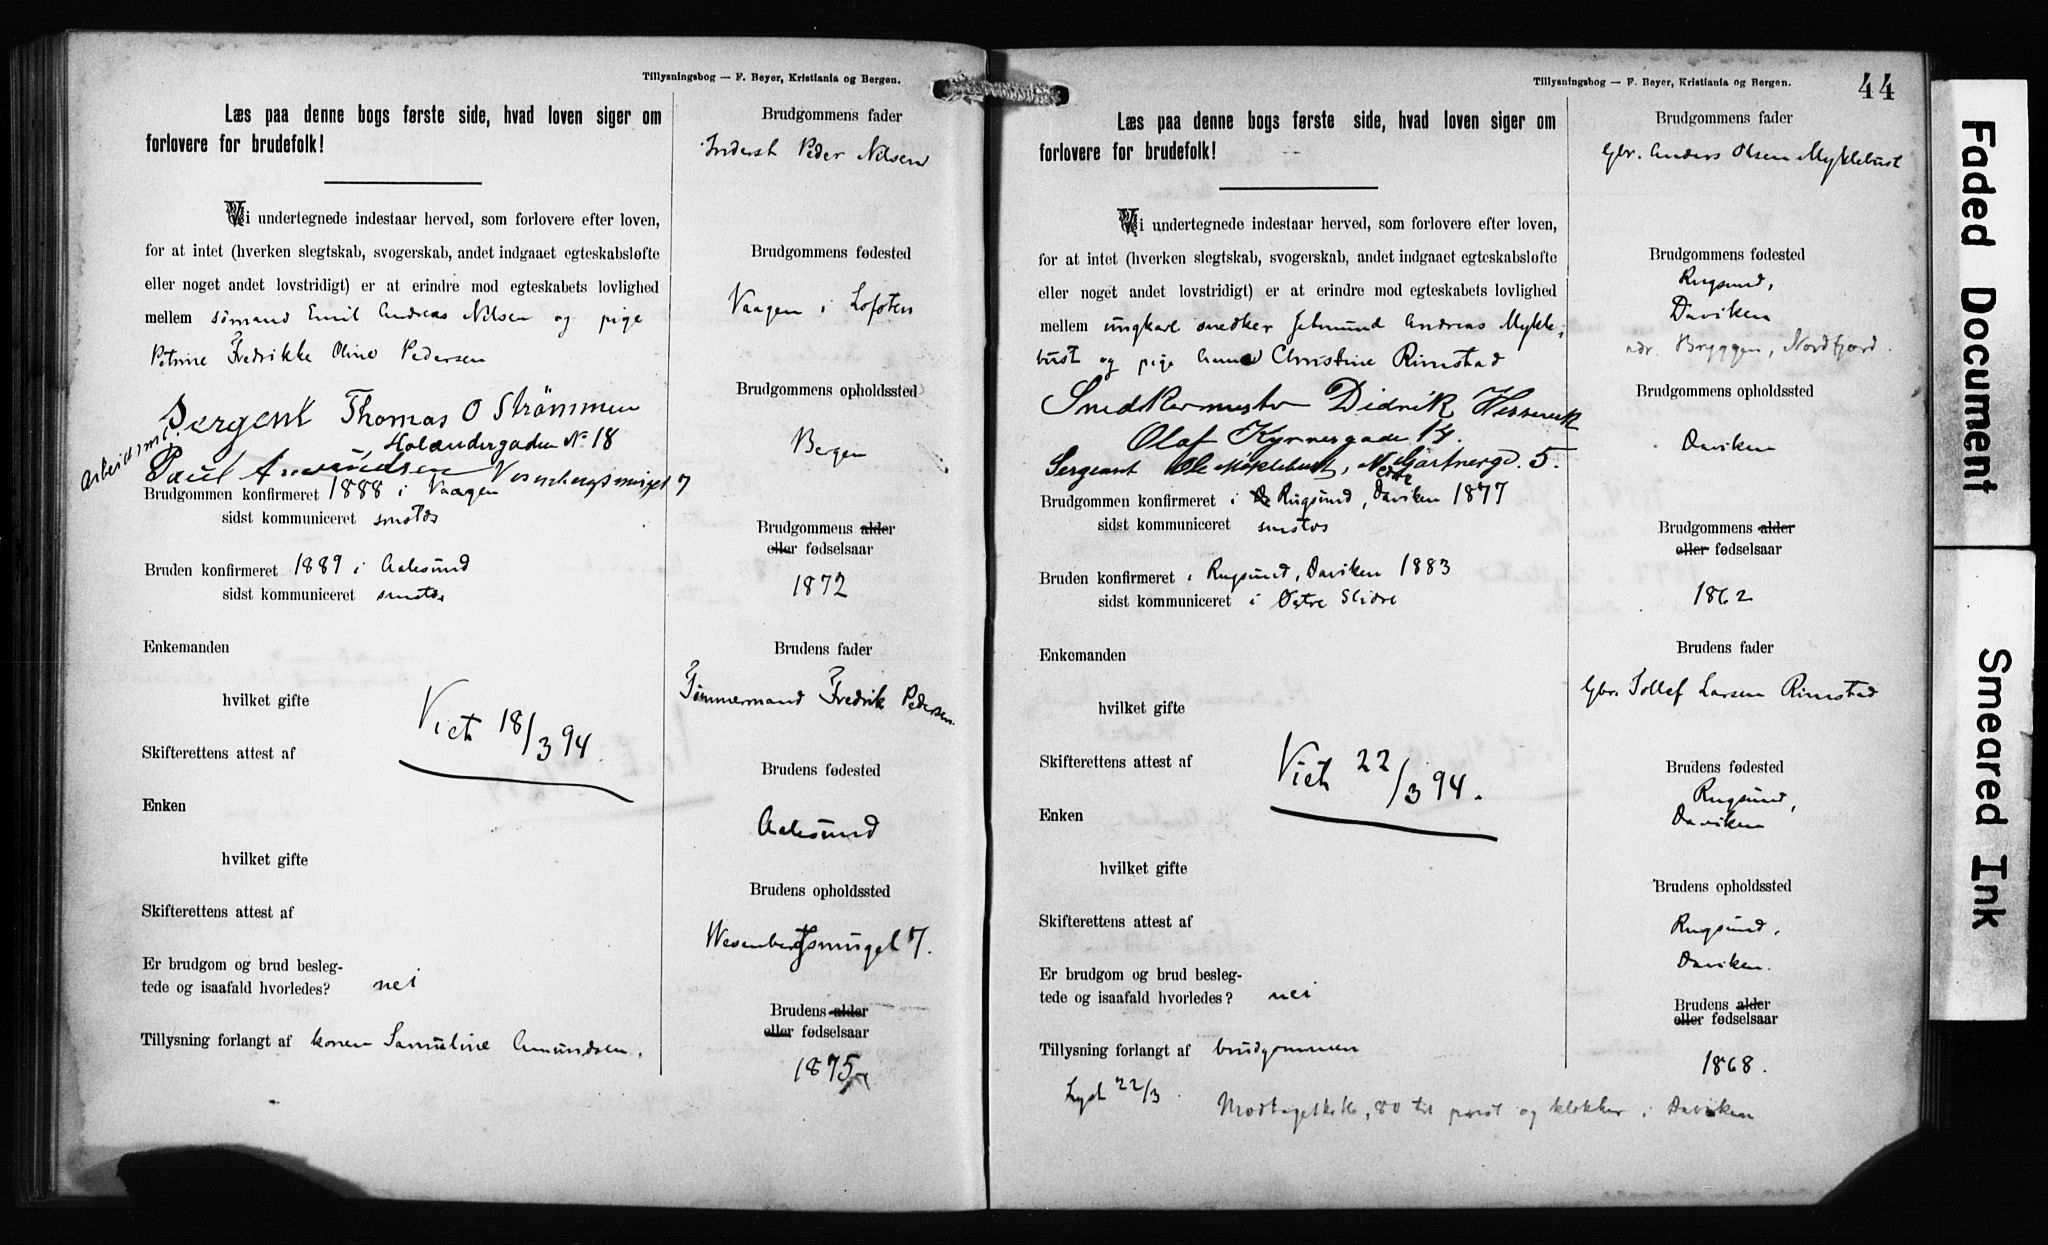 Tillysningsbog — F. Beyer, Kristiania og Bergen.
Læs paa denne bogs første side, hvad loven siger om
forlovere for brudefolk!
Vi undertegnede indestaar herved, som forlovere efter loven,
for at intet (hverken slegtskab, svogerskab, andet indgaaet egteskabsløfte
eller noget andet lovstridigt) er at erindre mod egteskabets lovlighed
mellem sømand Emil Andreas Nilsen og pige
Petrine Fredrikke Oline Pedersen
Sergent Thomas O Strömmen
Holændergaden No 18
Paul Amundsen
Brudgommen konfirmeret 1888 i Vaagen
sidst kommuniceret smstds
Bruden konfirmeret 1889 i Aalesund
sidst kommuniceret smstds
Enkemanden
hvilket gifte
Viet 18/3 94.
Skifterettens attest af
Enken
hvilket gifte
Skifterettens attest af
Er brudgom og brud besleg-
tede og isaafald hvorledes? nei
Tillysning forlangt af konen Samuline Amundsen.
Brudgommens fader
Inderst Peder Nilsen
Brudgommens fødested
Vaagen i Lofoten
Brudgommens opholdssted
Bergen
Brudgommens alder
eller fødselsaar
1872
Brudens fader
Tømmermand Fredrik Pedersen
Brudens fødested
Aalesund
Brudens opholdssted
Wesenbergsmuget 7.
Brudens alder
eller fødselsaar
1875
Tillysningsbog — F. Beyer, Kristiania og Bergen.
44
Læs paa denne bogs første side, hvad loven siger om
forlovere for brudefolk!
Vi undertegnede indestaar herved, som forlovere efter loven,
for at intet (hverken slegtskab, svogerskab, andet indgaaet egteskabsløfte
eller noget andet lovstridigt) er at erindre mod egteskabets lovlighed
mellem ungkarl snedker Jetmund Andreas Mykle-
bust og pige Anne Christine Rimstad
Snedkermester Didrik
Olaf Kyrresgade 14.
Sergeant Ole Myklebust, Gartnergd. 5.
Brudgommen konfirmeret i Rugsund, Daviken 1877
sidst kommuniceret smstds
Bruden konfirmeret i Rugsund, Daviken 1883
sidst kommuniceret i Østre Slidre
Enkemanden
hvilket gifte
Skifterettens attest af
Viet 22/3 94.
Enken
hvilket gifte
Skifterettens attest af
Er brudgom og brud besleg-
tede og isaafald hvorledes? nei
Tillysning forlangt af brudgommen
Lyst 22/3
til prest og klokker i Daviken
Brudgommens fader
Gbr. Anders Olsen Myklebust
Brudgommens fødested
Rugsund,
Daviken
adr. Bryggen, Nordfjord.
Brudgommens opholdssted
Daviken
Brudgommens alder
eller fødselsaar
1862
Brudens fader
Gbr. Tollef Larsen Rimstad
Brudens fødested
Rugsund,
Daviken
Brudens opholdssted
Rugsund,
Daviken.
Brudens alder
eller fødselsaar
1868.
Faded Document
Smeared Ink